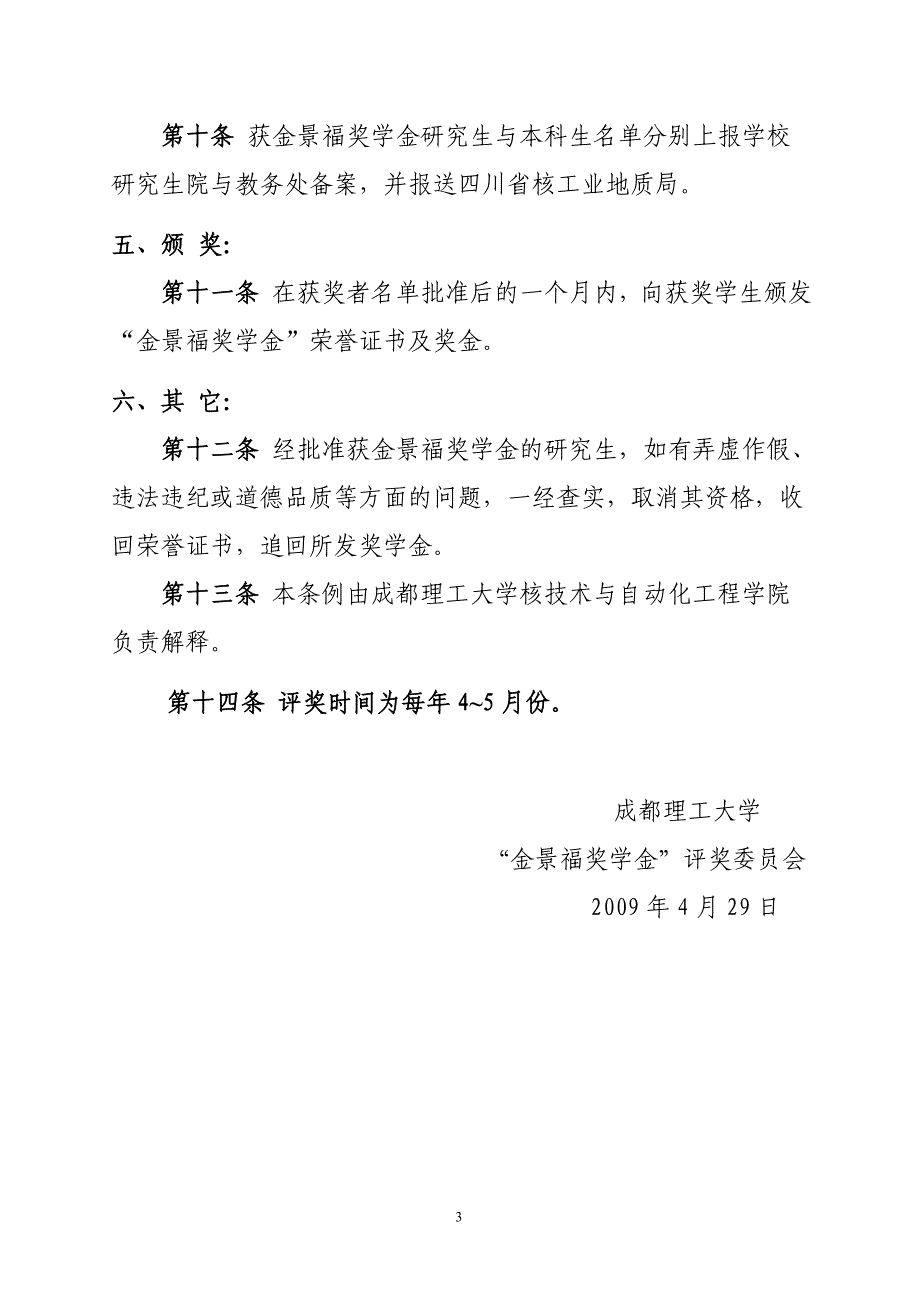 第十条 获金景福奖学金研究生与本科生名单分别上报学校
研究生院与教务处备案，并报送四川省核工业地质局。
五、颁 奖：
第十一条 在获奖者名单批准后的一个月内，向获奖学生颁发
“金景福奖学金”荣誉证书及奖金。
六、其 它：
第十二条 经批准获金景福奖学金的研究生，如有弄虚作假、
违法违纪或道德品质等方面的问题，一经查实，取消其资格，收
回荣誉证书，追回所发奖学金。
第十三条 本条例由成都理工大学核技术与自动化工程学院
负责解释。
第十四条 评奖时间为每年 4~5 月份。
成都理工大学
“金景福奖学金”评奖委员会
2009 年 4 月 29 日
3